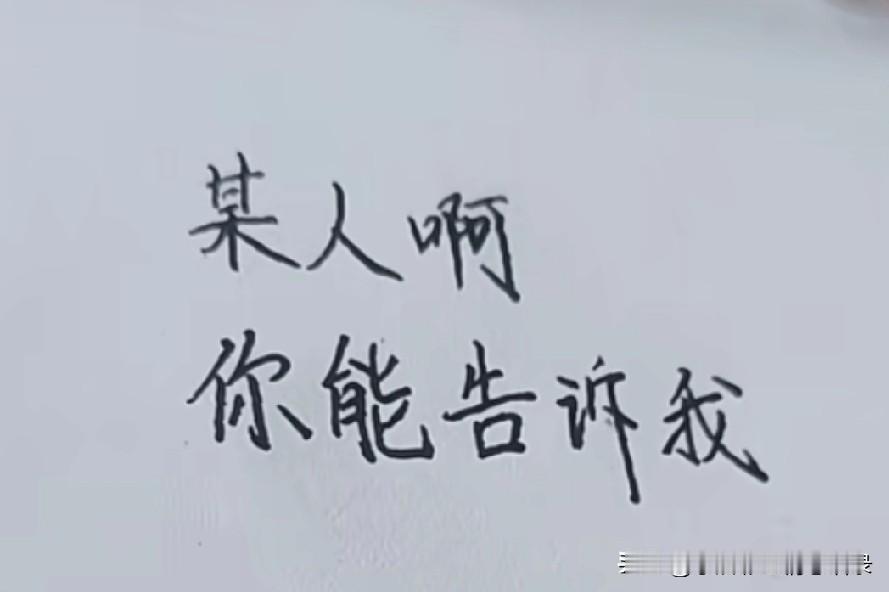 某人啊
你能告诉我